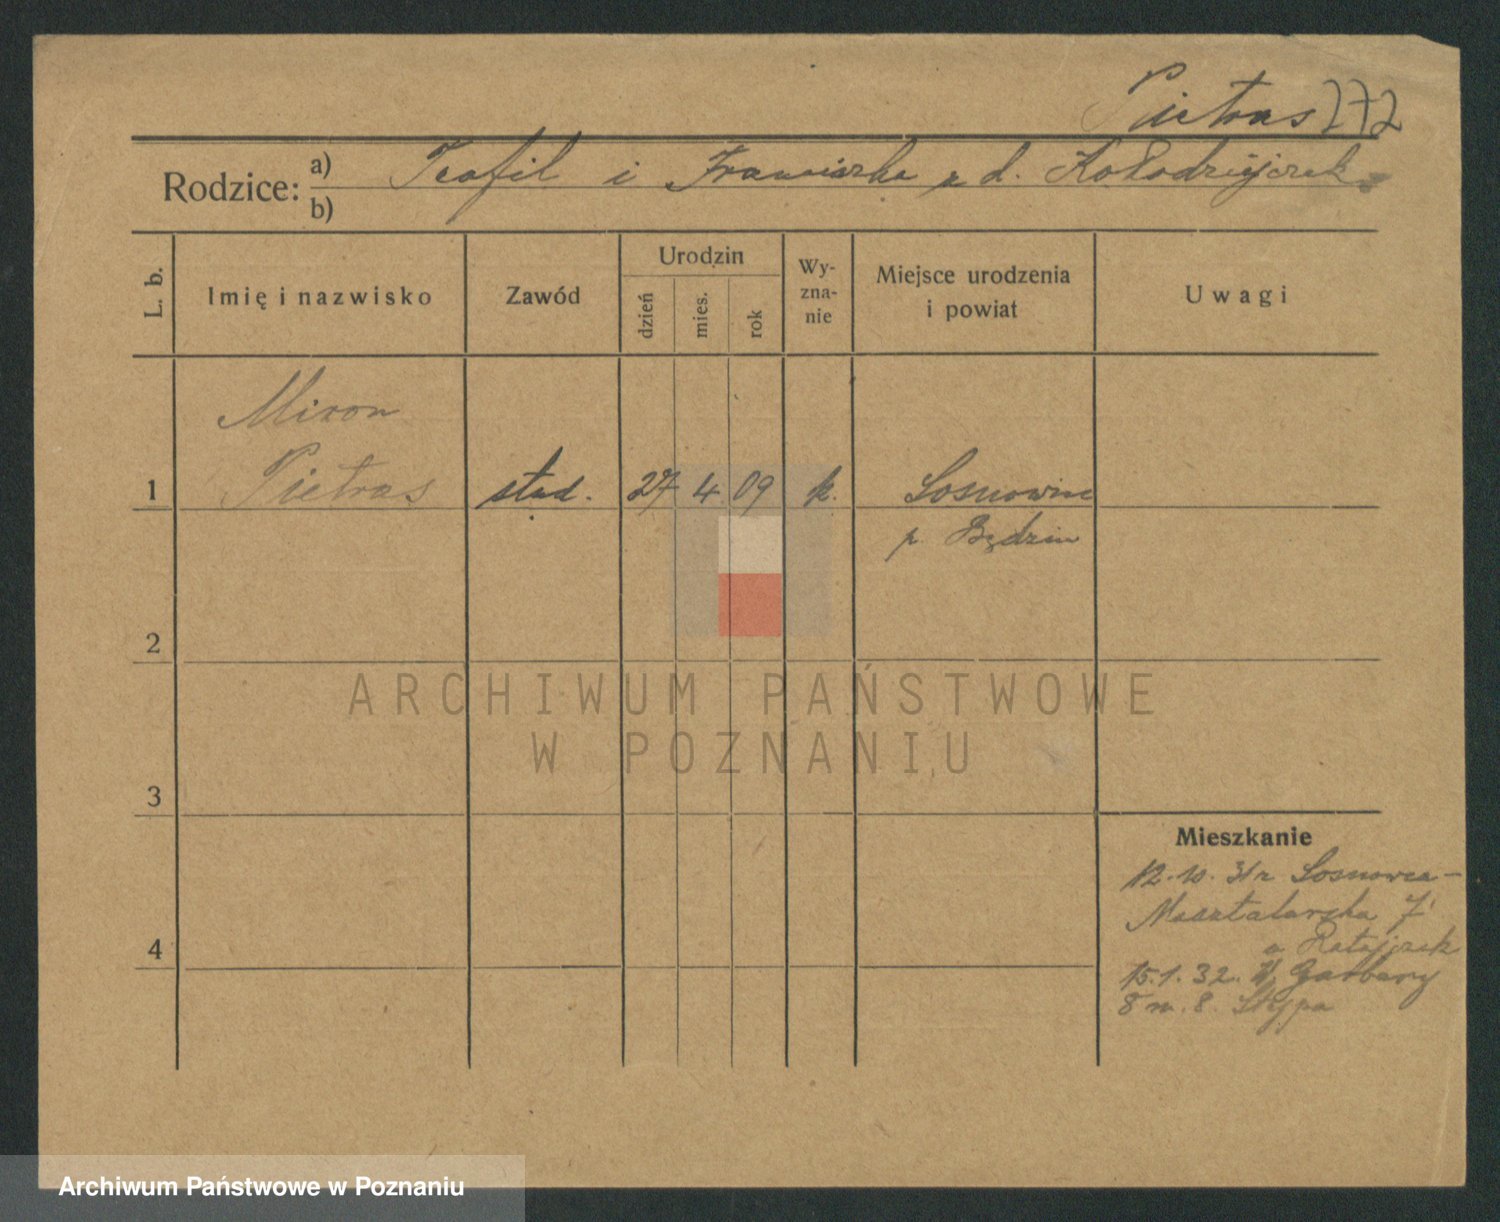 Pietras 272
Rodzice: a) Teofil i Franciszka z d. Kołodziejczak
b)
L. b. Imię i nazwisko Zawód Urodzin dzień mies. rok Wy-zna-nie Miejsce urodzenia i powiat Uwagi
Miron
1 Pietras stud. 27 4 09 k. Sosnowiec
p. Będzin
2
ARCHIWUM PAŃSTWOWE
W POZNANIU
3
Mieszkanie
12.10.31 z Sosnowca -
Masztalarska 7
u Ratajczak
4
15.1.32. Garbary
8 m. 8. Stypa
Archiwum Państwowe w Poznaniu